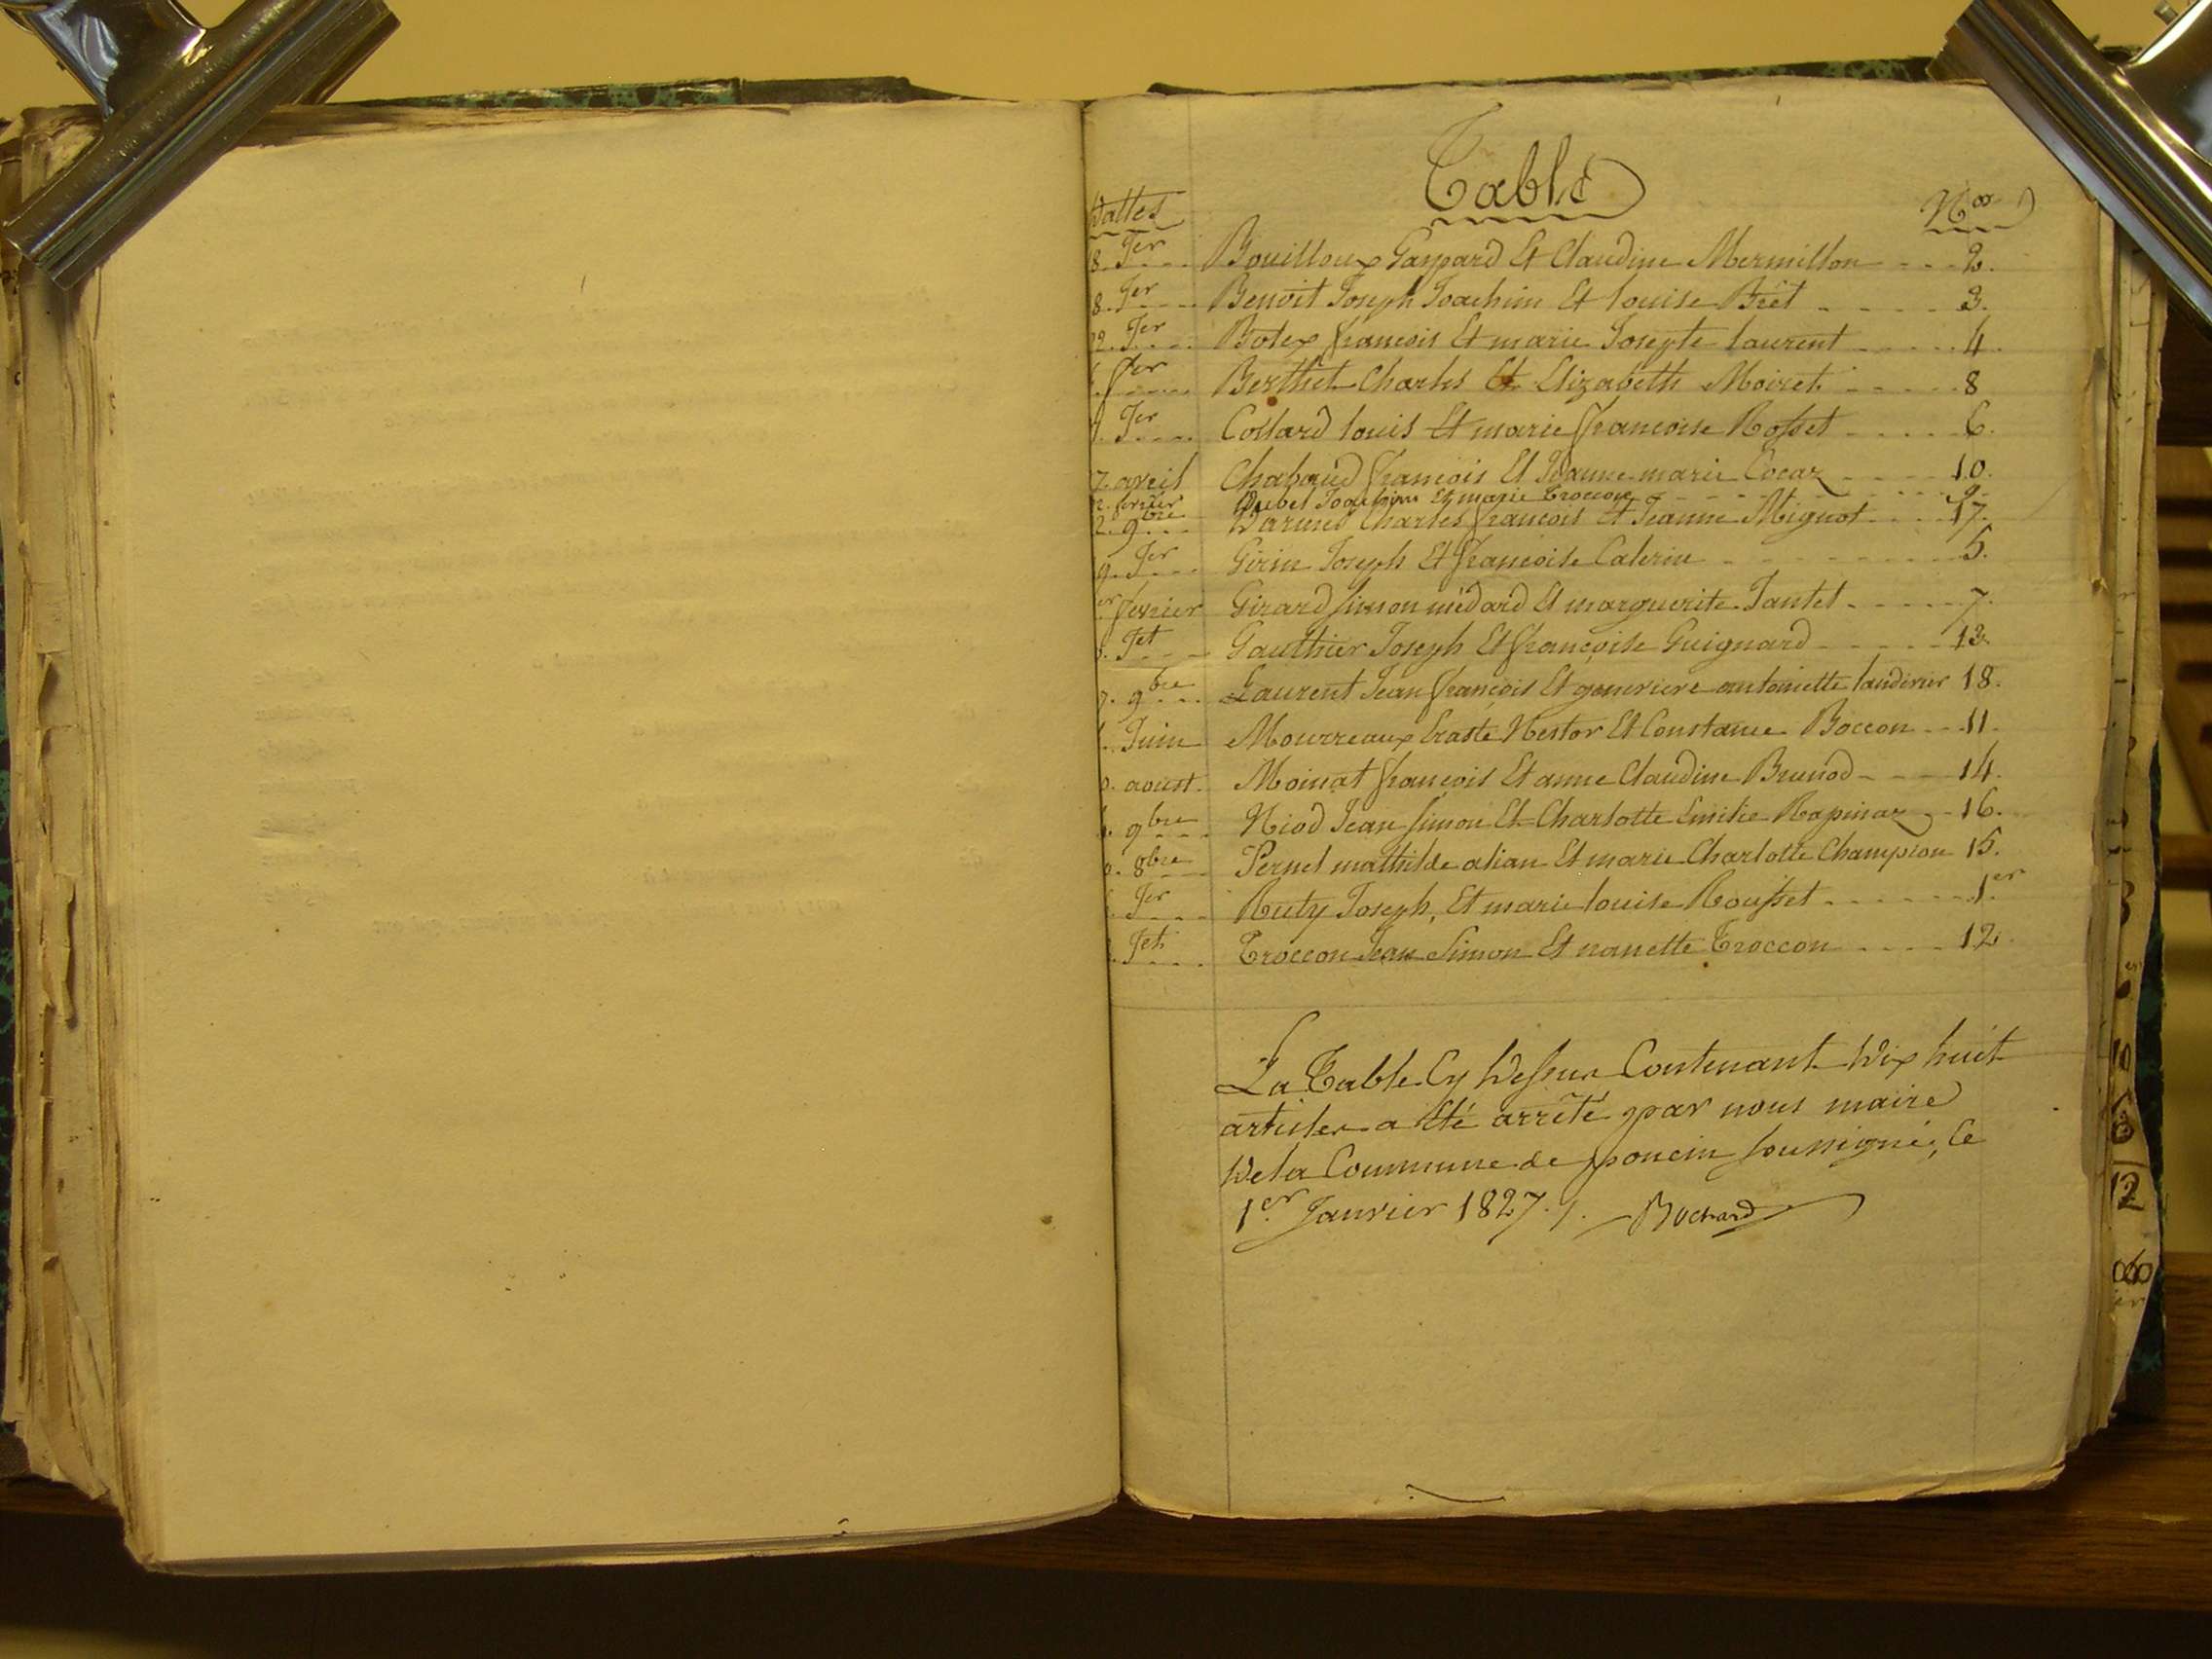 Table
Dattes Nos
8. Jer Bouilloux Gaspard Et Claudine Mermillon 2.
8. Jer Benoit Joseph Joachim Et louise Brêt 3.
22. Jer Botex francois Et marie Josepte laurent 4
fer Berthet Charles Et Elizabeth Moiret 8
Jer Collard louis Et marie francoise Rosset 6.
7. avril Chabaud francois Et Jeanne marie Cocaz 10.
12. fevrier Dubel Joachim Et marie Troccon 9.
2. 9bre Darmes Charles francois Et Jeanne Mignot 17.
9. Jer Girin Joseph Et francoise Calerin 5.
er fevrier Girard simon médard Et marguerite Jantet 7.
Jet Gauthier Joseph Et françoise Guignard 13.
7. 9bre Laurent Jean françois Et genevieve antoinette 18.
Juin Mourreaux Eraste Nestor Et Constance Boccon 11.
0. aoust. Moinat francois Et anne Claudine Brunod 14.
9bre Niod Jean simon Et Charlotte Emilie Rapinaz 16.
0. 8bre Pernel mathilde alian Et marie Charlotte Champion 15.
Jer Ruty Joseph, Et marie louise Rousset 1er
Jet Troccon Jean Simon Et nanette Troccon 12.
La Table Cy Dessus Contenant Dix huit
articles a été arrêté par nous maire
De la Commune de poncin soussigné, le
1er Janvier 1827. /. Bochard